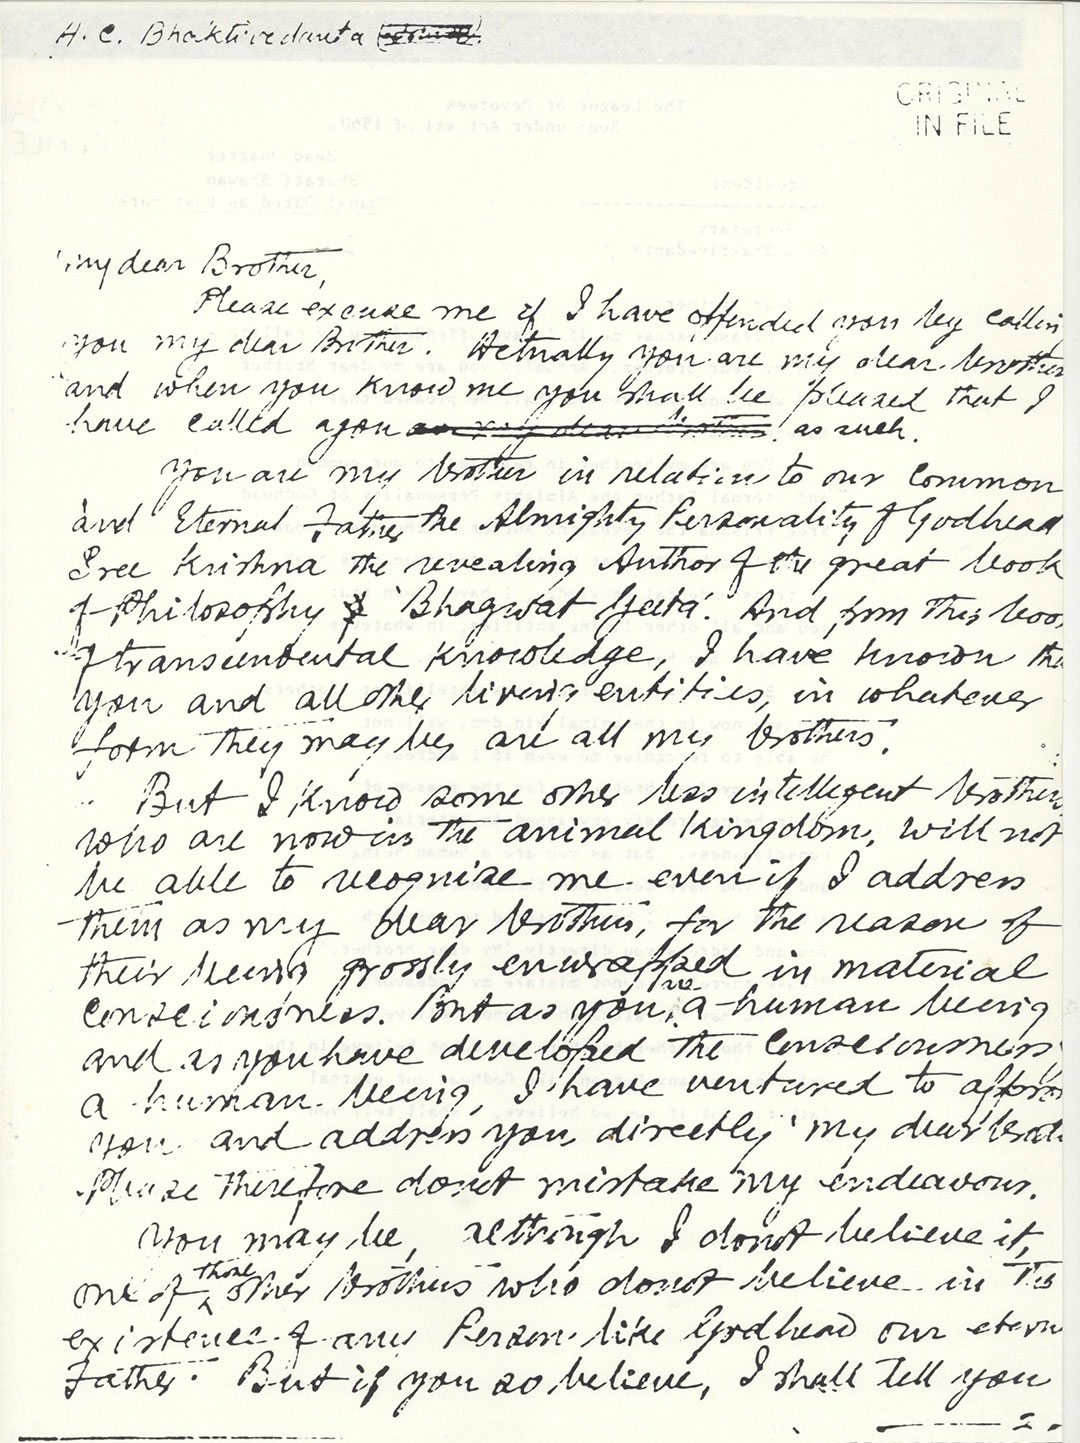 A. C. Bhaktivedanta
ORIGINAL
IN FILE
The League of Devotees
Head Quarter
Bharati Bhawan
Secretary
My dear Brother,
Please excuse me if I have offended you by callin
you my dear Brother. Actually you are my dear brother
and when you know me you shall be pleased that I
have called you as my dear brother. as such.
You are my brother in relation to our common
and Eternal Father the Almighty Personality of Godhead
Sree Krishna the revealing Author of the great book
of Philosophy 'Bhagwat Geeta'. And from this boo
of transcendental knowledge, I have known tha
you and all other living entities, in whatever
form they may be, are all my brothers.
But I know some other less intelligent brothers
who are now in the animal kingdom, will not
be able to recognise me even if I address
them as my dear brothers, for the reason of
their being grossly enwrapped in material
consciousness. But as you are a human being
and as you have developed the consciousness
a human being, I have ventured to approa
you and address you directly 'my dear broth
Please therefore donot mistake my endeavour.
You may be, although I donot believe it,
one of those other brothers who donot believe in the
existence of any Person like Godhead our etern
Father. But if you so believe, I shall tell you
2.